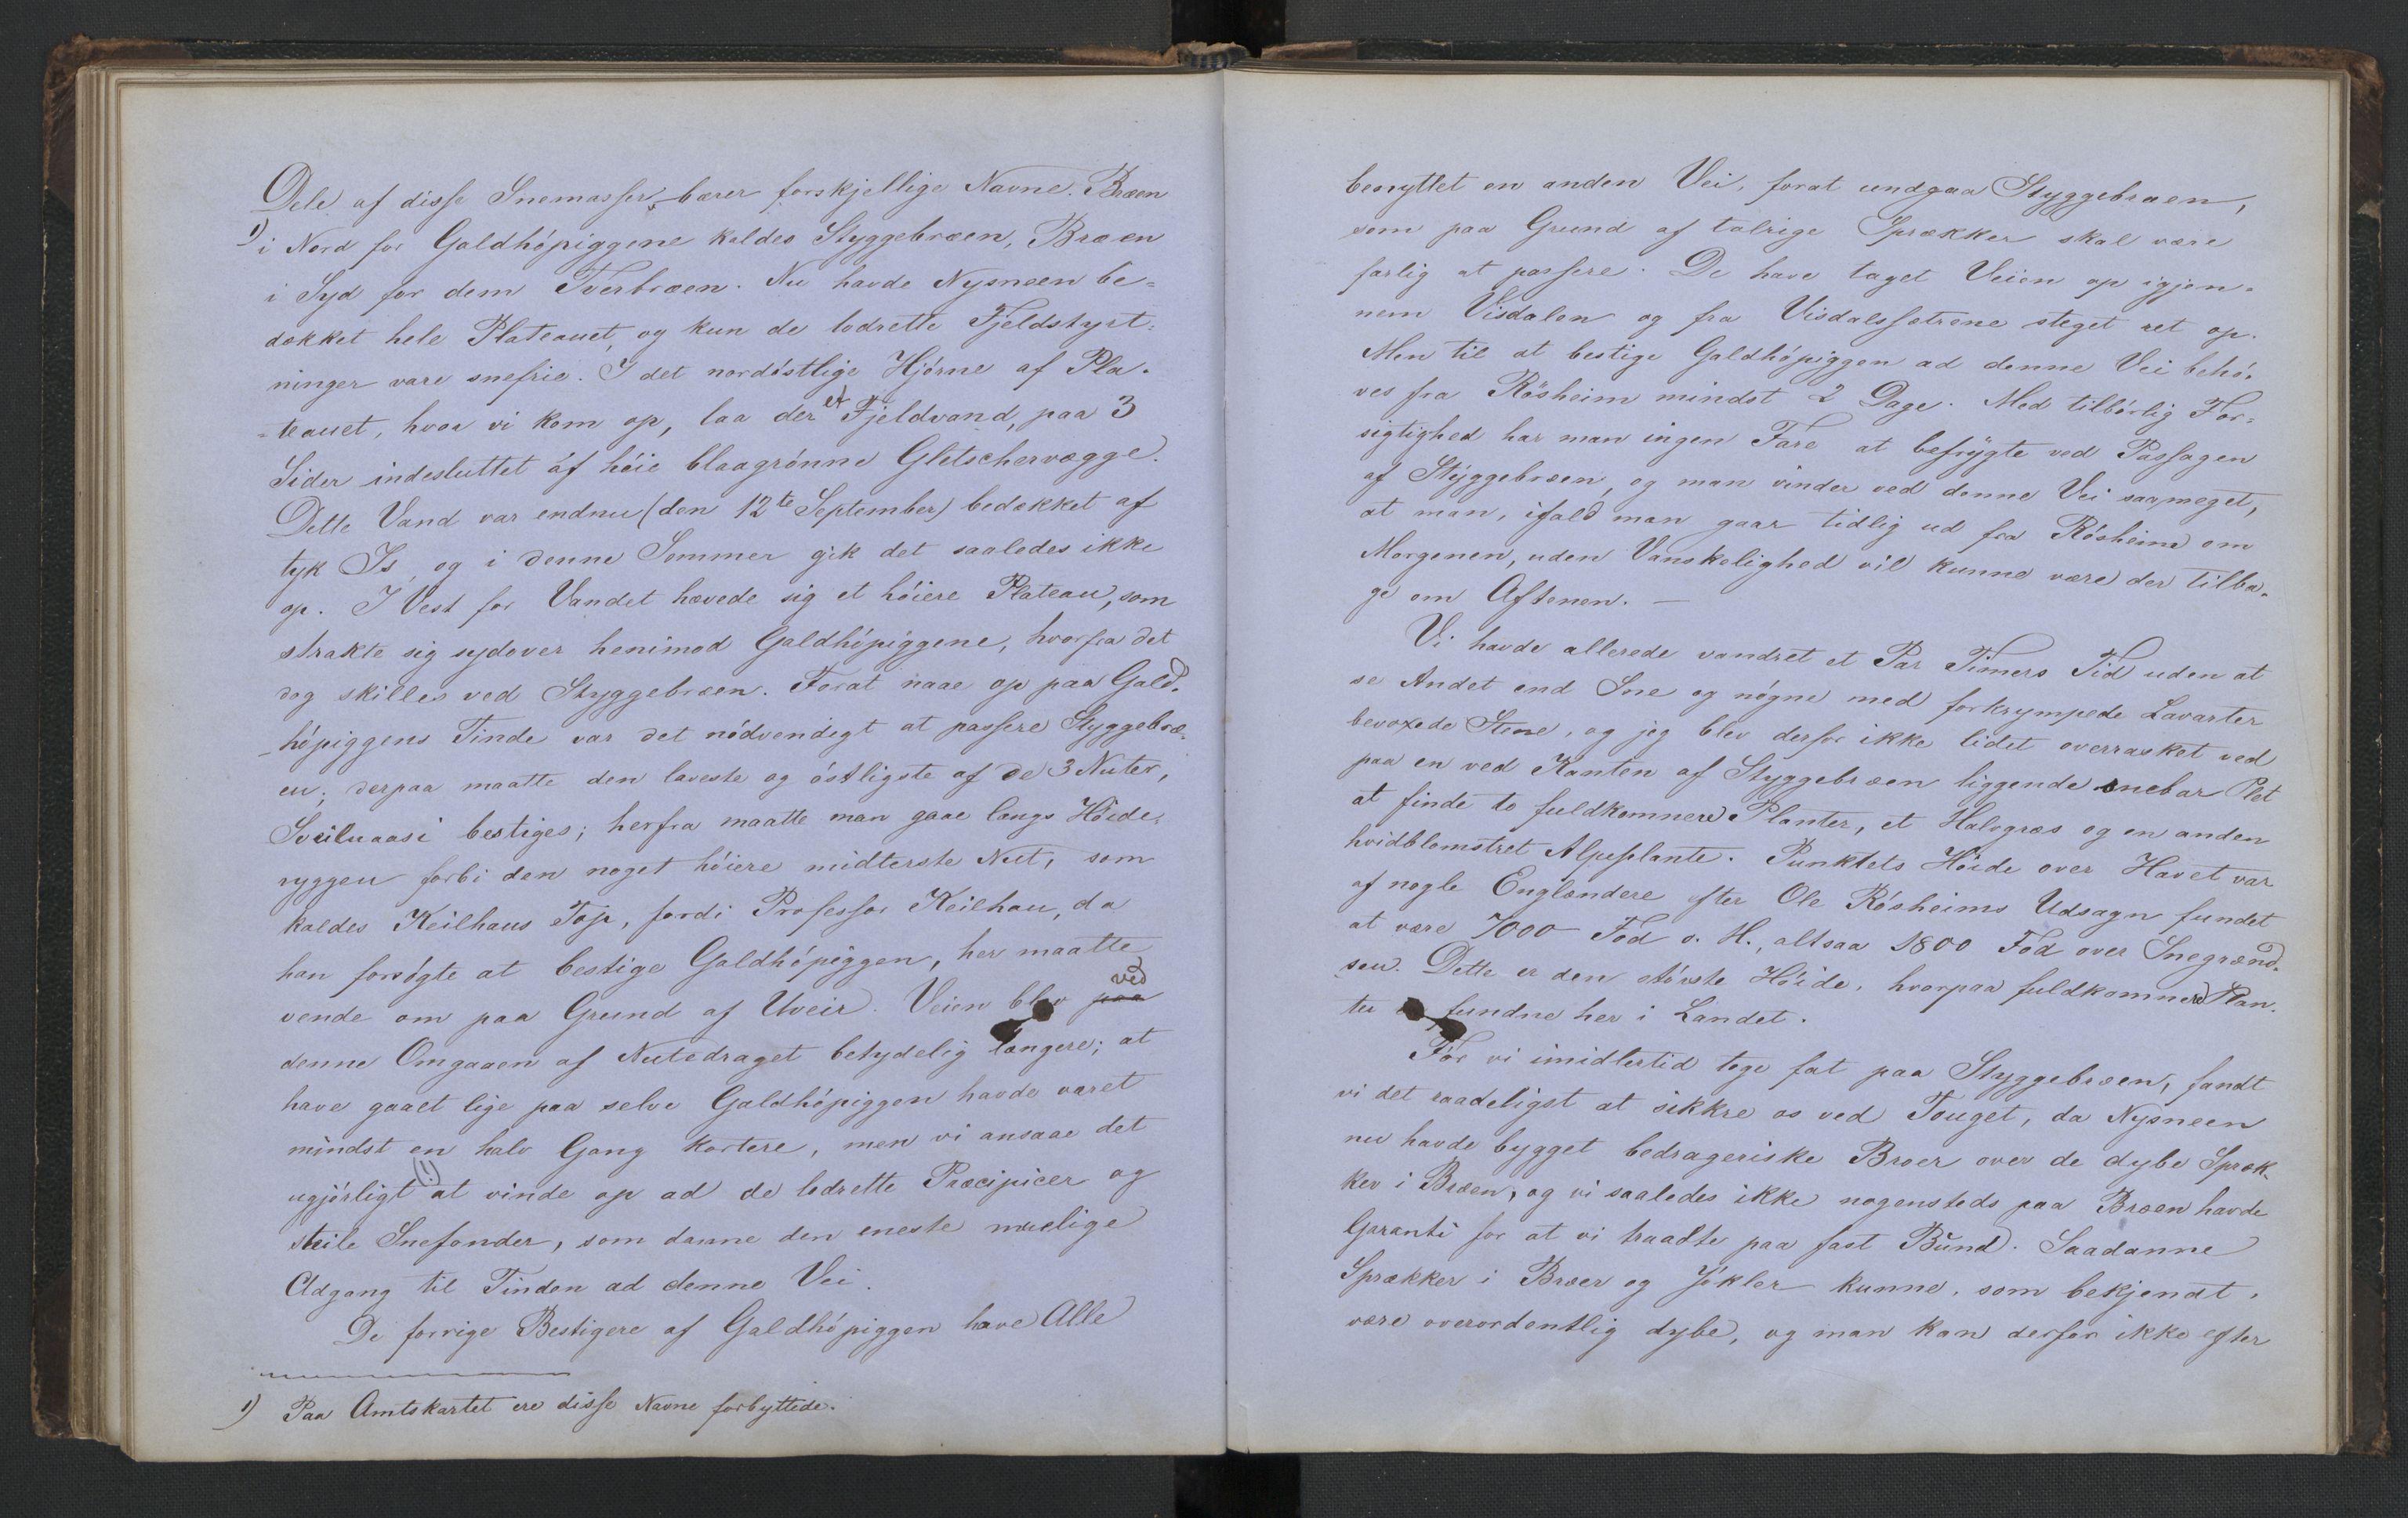 Dele af disse Snemasser, bærer forskjellige Navne. Bræen
1) i Nord for Galdhöpiggene kaldes Styggebræen, Bræen
i Syd for dem Tverbræen. Nu havde Nysneen be=
dækket hele Plateauet, og kun de lodrette Fjeldstyrt=
ninger vare snefrie. I det nordöstlige Hjörne af Pla=
=teauet, hvor vi kom op, laa der et Fjeldvand, paa 3
Sider indesluttet af höie blaagrönne Gletschervægge.
Dette Vand var endnu (den 12te September) bedækket af
tyk Is, og i denne Sommer gik det saaledes ikke
op. I Vest for Vandet hævede sig et höiere Plateau, som
strakte sig sydover henimod Galdhöpiggene, hvorfra det
dog skilles ved Styggebræen. Forat naae op paa Gald=
=höpiggens Tinde var det nödvendigt at passere Styggebræ=
en; derpaa maatte den laveste og östligste af de 3 Nuter,
Sveiluaasi bestiges; herfra maatte man gaae langs Höide=
ryggen forbi den noget höiere midterste Nut, som
kaldes Keilhaus Top, fordi Professor Keilhau, da
han forsögte at bestige Galdhöpiggen, her maatte
vende om paa Grund af Uveir. Veien blev paa ved
denne Omgaaen af Nutedraget betydelig længere; at
have gaaet lige paa selve Galdhöpiggen havde været
mindst en halv Gang kortere, men vi ansaae det
ugjörligt (!) at vinde op ad de lodrette Præcipicer og
steile Snefonder, som danne den eneste muelige
Adgang til Tinden ad denne Vei.
De forrige Bestigere af Galdhöpiggen have Alle
1) Paa Amtskartet ere disse Navne forbyttede.
benyttet en anden Vei, forat undgaa Styggebræen,
som paa Grund af talrige Sprækker skal være
farlig at passere. De have taget Veien op igjen=
nem Visdalen og fra Visdalssætrene steget ret op.
Men til at bestige Galdhöpiggen ad denne Vei behö=
ves fra Rösheim mindst 2 Dage. Med tilbörlig For=
sigtighed har man ingen Fare at befrygte ved Passagen
af Styggebræen, og man vinder ved denne Vei saameget,
at man, ifald man gaar tidlig ud fra Rösheim om
Morgenen, uden Vanskelighed vil kunne være der tilba=
ge om Aftenen. —
Vi havde allerede vandret et Par Timers Tid uden at
se Andet end Sne og nögne med forkrympede Lavarter
bevoxede Stene, og jeg blev derfor ikke lidet overrasket ved
paa en ved Kanten af Styggebræen liggende snebar Plet
at finde to fuldkomnere Planter, et Halvgræs og en anden
hvidblomstret Alpeplante. Punktets Höide over Havet var
af nogle Englændere efter Ole Rösheims Udsagn fundet
at være 7000 Fod o. H., altsaa 1800 Fod over Snegrænd=
sen. Dette er den störste Höide, hvorpaa fuldkomnere Plan=
ter fundne her i Landet.
För vi imidlertid toge fat paa Styggebræen, fandt
vi det raadeligst at sikkre os ved Touget, da Nysneen
nu havde bygget bedrageriske Broer over de dybe Spræk=
ker i Bræen, og vi saaledes ikke nogensteds paa Bræen havde
Garanti for at vi traadte paa fast Bund. Saadanne
Sprækker i Bræer og Jökler kunne, som bekjendt,
være overordentlig dybe, og man kan derfor ikke efter